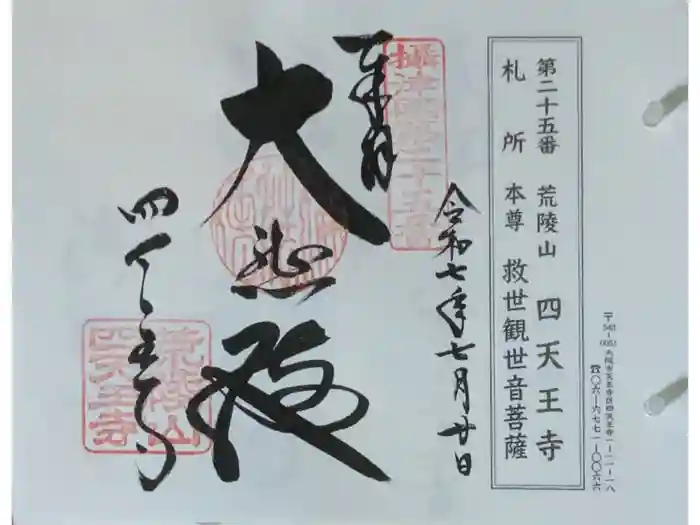 第二十五番 荒陵山 四天王寺
札所本尊 救世観世音菩薩
〒543-0051 大阪市天王寺区四天王寺一-一一-一八
☎〇六-六七七一-〇〇六六
令和七年七月廿日
摂津国第二十五番
奉拝
大悲殿
四天王寺
荒陵山
四天王寺